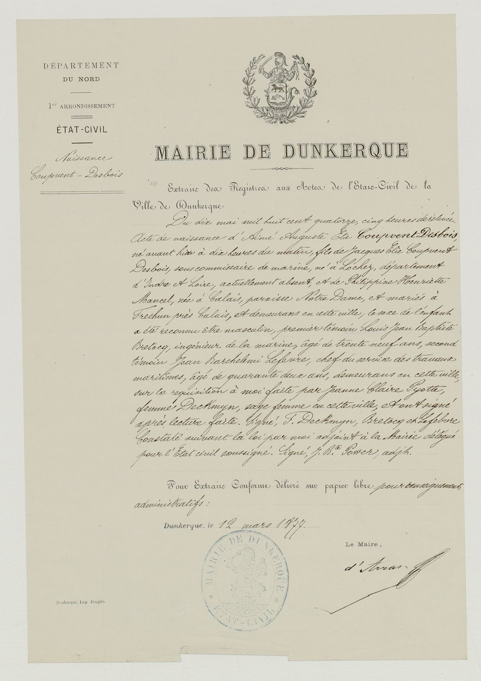 DÉPARTEMENT
DU NORD
1er ARRONDISSEMENT
ÉTAT-CIVIL
Naissance
Coupvent-Desbois
MAIRIE DE DUNKERQUE
Extrait des Registres aux Actes de l'État-Civil de la
Ville de Dunkerque
Du dix mai mil huit cent quatorze, cinq heures de relevée
Acte de naissance d'Aimé Auguste Elie Coupvent Desbois,
né avant hier à dix heures du matin, fils de Jacques Elie Coupvent
Desbois, sous commissaire de marine, né à Loches, département
d'Indre et Loire, actuellement absent, et de Philippine Henriette
Mancel, née à Calais, paroisse Notre Dame, et mariés à
près Calais, et demeurant en cette ville, le sexe de l'enfant
a été reconnu être masculin, premier témoin Louis Jean Baptiste
Bretocq, ingénieur de la marine, âgé de trente neuf ans, second
témoin Jean Barthélemi Lefebvre, chef du service des travaux
maritimes, âgé de quarante deux ans, demeurans en cette ville,
sur la réquisition à moi faite par Jeanne Claire
femme Deckmyn, sage femme en cette ville, et ont signé
après lecture faite. Signé, F. Deckmyn, Bretocq et Lefebvre
Constaté suivant la loi par moi adjoint à la Mairie délégué
pour l'Etat civil soussigné. Signé, J. Bte Power adjt.
Pour Extrait Conforme délivré sur papier libre pour renseignements
administratifs :
Dunkerque, le 12 mars 1877.
Le Maire,
d'Arras
MAIRIE DE DUNKERQUE
ÉTAT-CIVIL
Dunkerque, Imp.